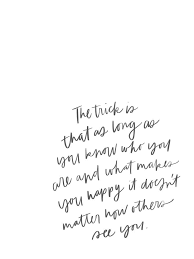 The trick is
that as long as
you know who you
are and what makes
you happy it doesn't
matter how others
see you.